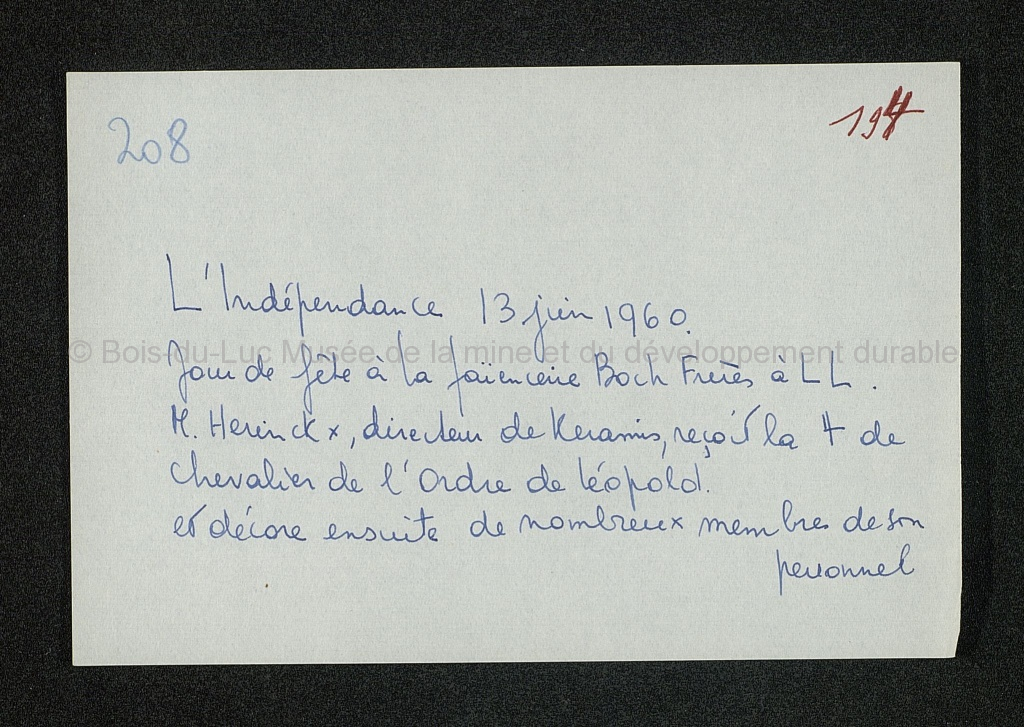 208
L'Indépendance 13 juin 1960.
© Bois-du-Luc Musée de la mine et du développement durable
Jour de fête à la faïencerie Boch Frères à LL.
M. Herinckx, directeur de Keramis, reçoit la + de
Chevalier de l'Ordre de Léopold.
et décore ensuite de nombreux membres de son
personnel